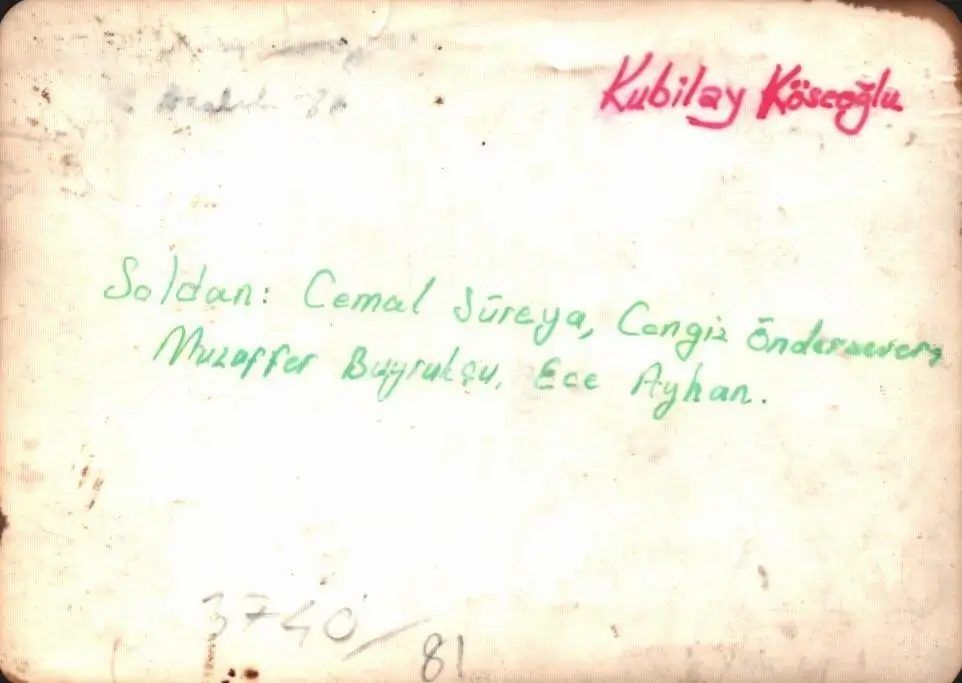 Kubilay Köseoğlu
Soldan: Cemal Süreya, Cengiz Öndersever,
Muzaffer Buyrukçu, Ece Ayhan.
3740/81